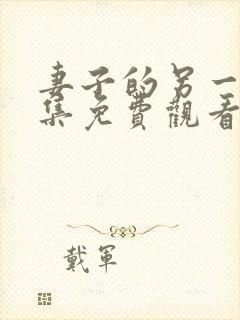 妻子的另一
集免費觀看
戴軍